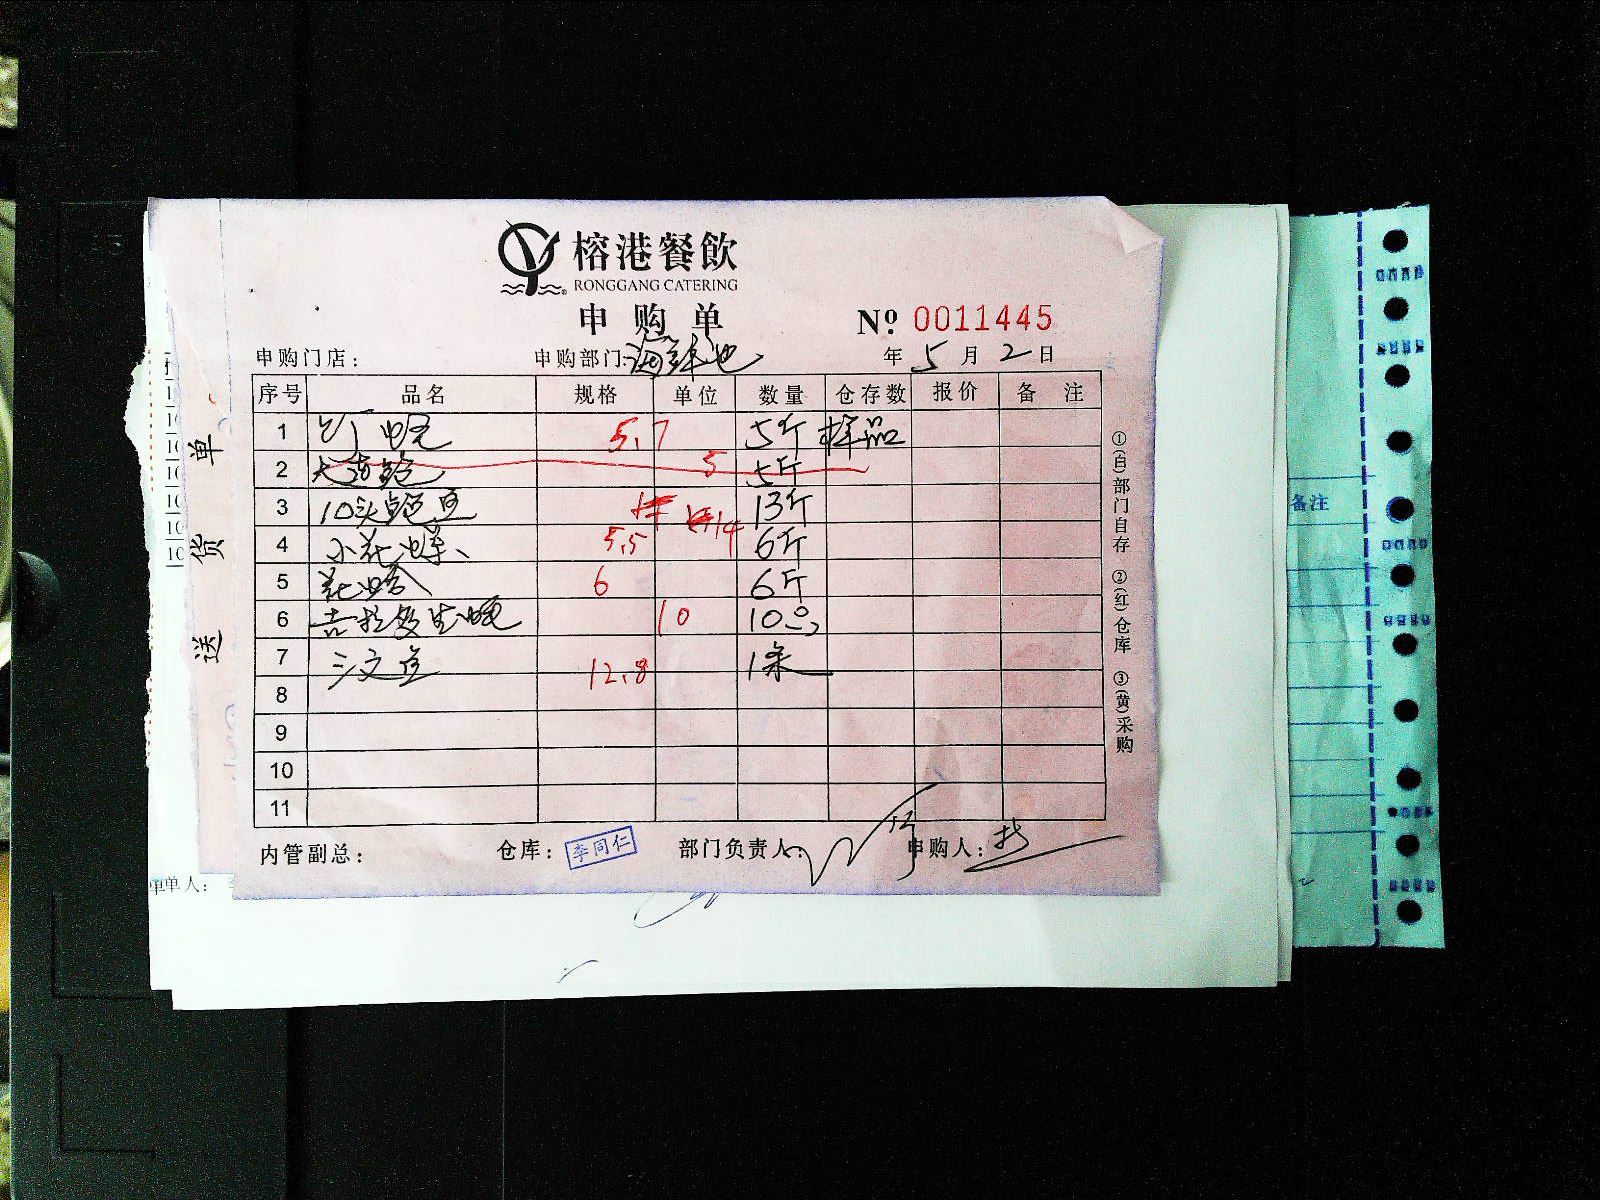 榕港餐飲
RONGGANG CATERING
申购单
№ 0011445
申购门店： 申购部门：海鲜池 年 5 月 2 日
序号 品名 规格 单位 数量 仓存数 报价 备 注
1 5.7 5斤 样品
2 5 5斤
3 10头鲍鱼 14 13斤
4 小花螺 5.5 6斤
5 花蛤 6 6斤
6 吉拉多生蚝 10 10只
7 三文鱼 12.8 1条
8
9
10
11
内管副总： 仓库：李同仁 部门负责人： 申购人：
①(白)部门自存 ②(红)仓库 ③(黄)采购
送货单
备注
单人：